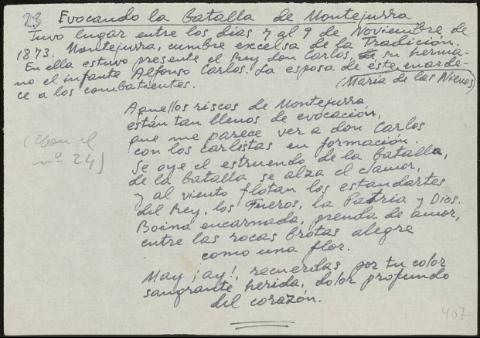 23 Evocando la batalla de Montejurra
Tuvo lugar entre los días 7 al 9 de Noviembre de
1873. Montejurra, cumbre excelsa de la Tradición.
En ella estuvo presente el Rey don Carlos, su herma-
no el infante Alfonso Carlos. La esposa de éste enarde-
ce a los combatientes. (María de las Nieves)
Aquellos riscos de Montejurra
están tan llenos de evocación,
que me parece ver a don Carlos
con los carlistas en formación.
(con el
nº 24)
Se oye el estruendo de la batalla,
de la batalla se alza el clamor,
y al viento flotan los estandartes
del Rey, los Fueros, la Patria y Dios.
Boina encarnada, prenda de amor,
entre las rocas brotas alegre
como una flor.
Mas ¡ay!, recuerdas por tu color
sangrante herida, dolor profundo
del corazón.
407